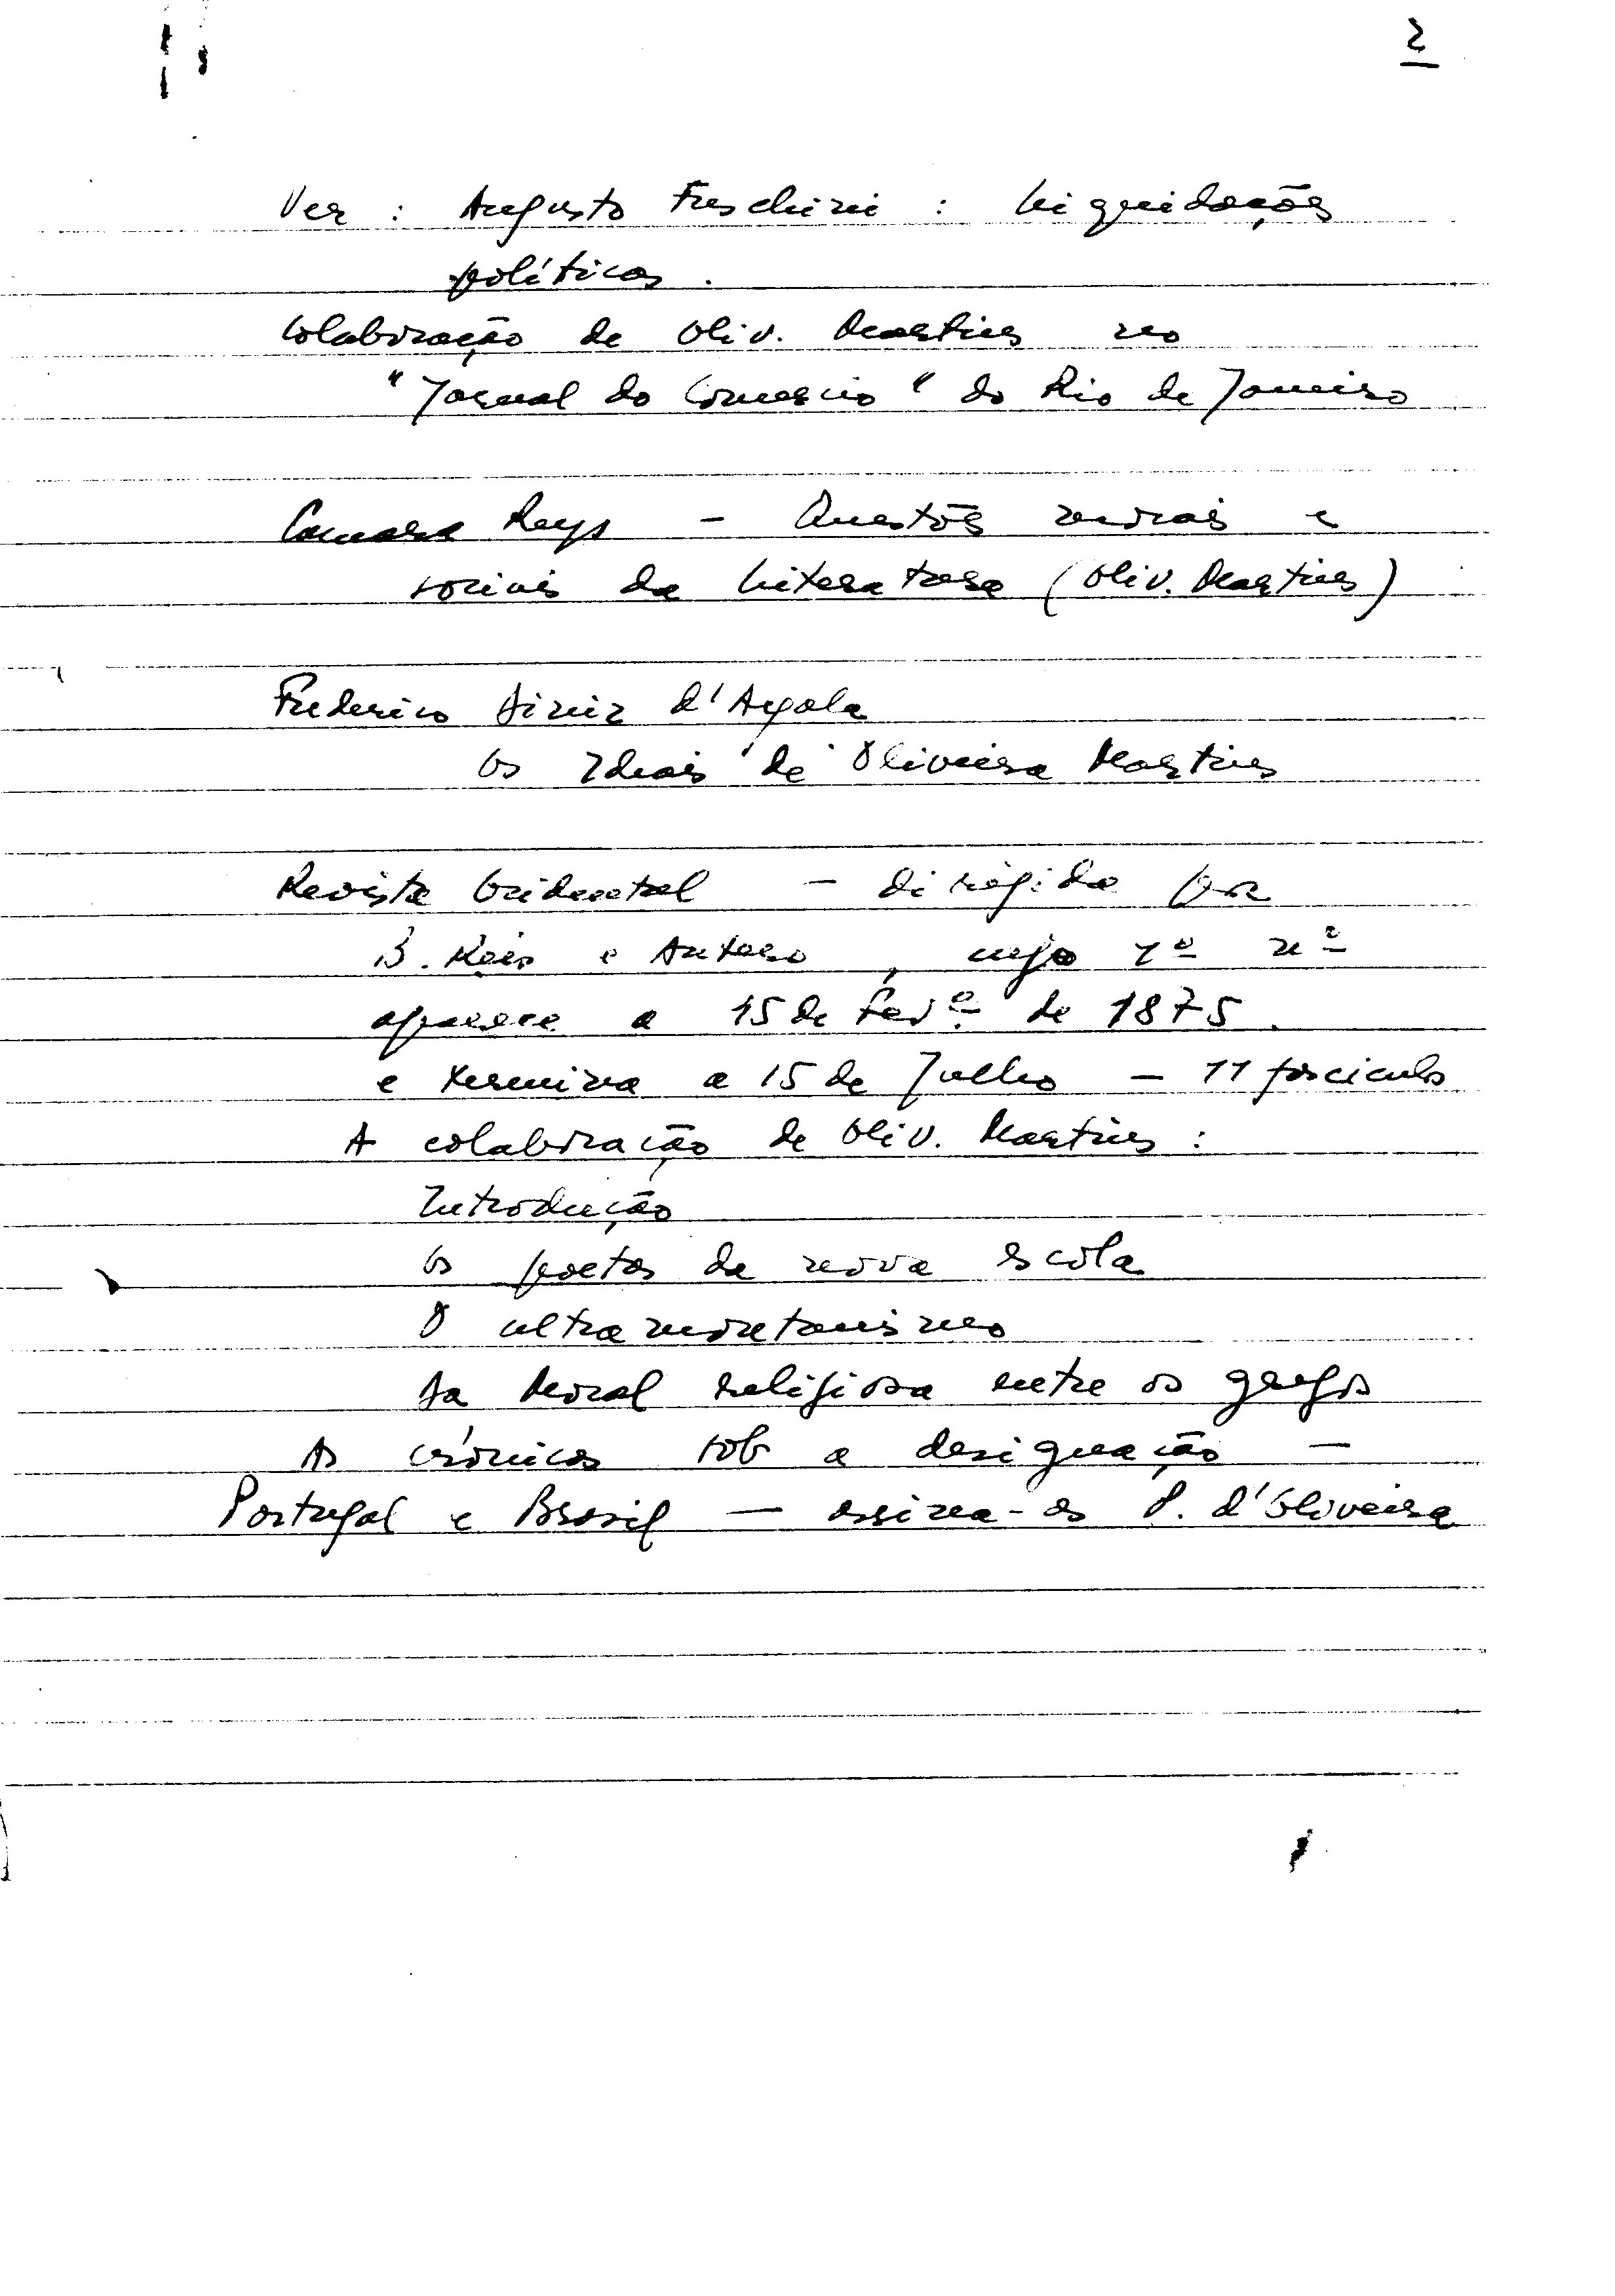 2
Ver : Augusto Fuschini : Liquidações
políticas.
Colaboração de Oliv. Martins no
"Jornal do Comercio" do Rio de Janeiro
Camara Reys - Questões morais e
sociais da Literatura (Oliv. Martins)
Frederico Diniz d'Ayala
Os Ideais de Oliveira Martins
Revista Ocidental - dirigida por
B. Reis e Antero, cujo 1º nº
aparece a 15 de Fevº de 1875.
e termina a 15 de Julho - 11 fasciculos
A colaboração de Oliv. Martins :
Introdução
Os poetas da nova escola
O ultramontanismo
Da Moral religiosa entre os gregos
As crónicas sob a designação —
Portugal e Brasil — assina-as P. d'Oliveira